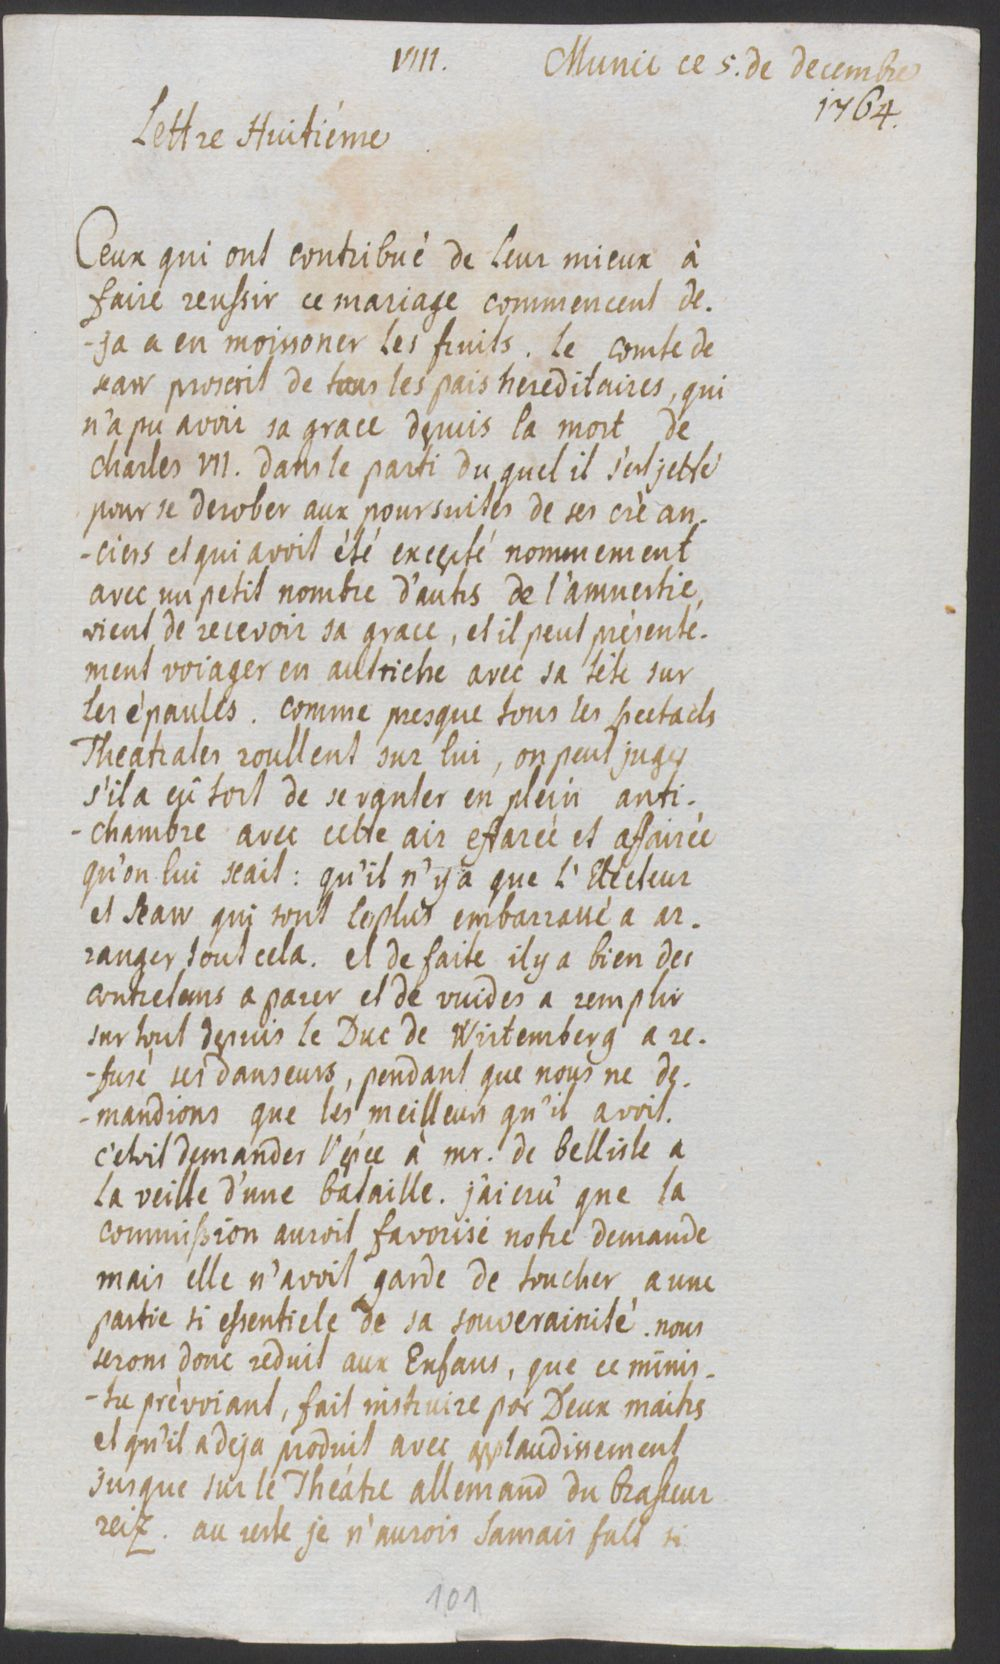 VIII.
Munic ce 5. de decembre
1764.
Lettre Huitiéme
Ceux qui ont contribué de leur mieux à
faire reussir ce mariage commencent de-
-ja a en moissoner les fruits. le comte de
seaw proscrit de tous les pais hereditaires, qui
n'a pu avoir sa grace depuis la mort de
charles VII. dans le parti du quel il s'est jetté
pour se derober aux poursuites de ses crèan-
-ciers et qui avoit été excepté nommement
avec un petit nombre d'autrs de l'amnestie,
vient de recevoir sa grace, et il peut présente-
ment voiager en autriche avec sa tête sur
les épaules. comme presque tous les spectacls
Theatrales roullent sur lui, on peut juger
s'il a eû tort de se vanter en plein anti-
-chambre avec cette air effarée et affairée
qu'on lui scait: qu'il n'y a que L'Electeur
et Seaw qui sont le plus embarrassé a ar-
ranger tout cela. et de faite il y a bien des
contretems a parer et de vuides a remplir
sur tout depuis le Duc de Wirtemberg a re-
-fusé ses danseurs, pendant que nous ne de-
-mandions que les meilleurs qu'il avoit.
c'etoit demander l'epée à mr. de bellisle a
la veille d'une bataille. j'ai crû que la
commission auroit favorisé notre demande
mais elle n'avoit garde de toucher a une
partie si essentiele de sa souverainité. nous
serons donc reduit aux Enfans, que ce minis-
-tre prèvoiant, fait instruire par Deux maitrs
et qu'il a deja produit avec applaudissement
jusque sur le Théatre allemand du brasseur
reiz. au reste je n'aurois jamais fait si
101